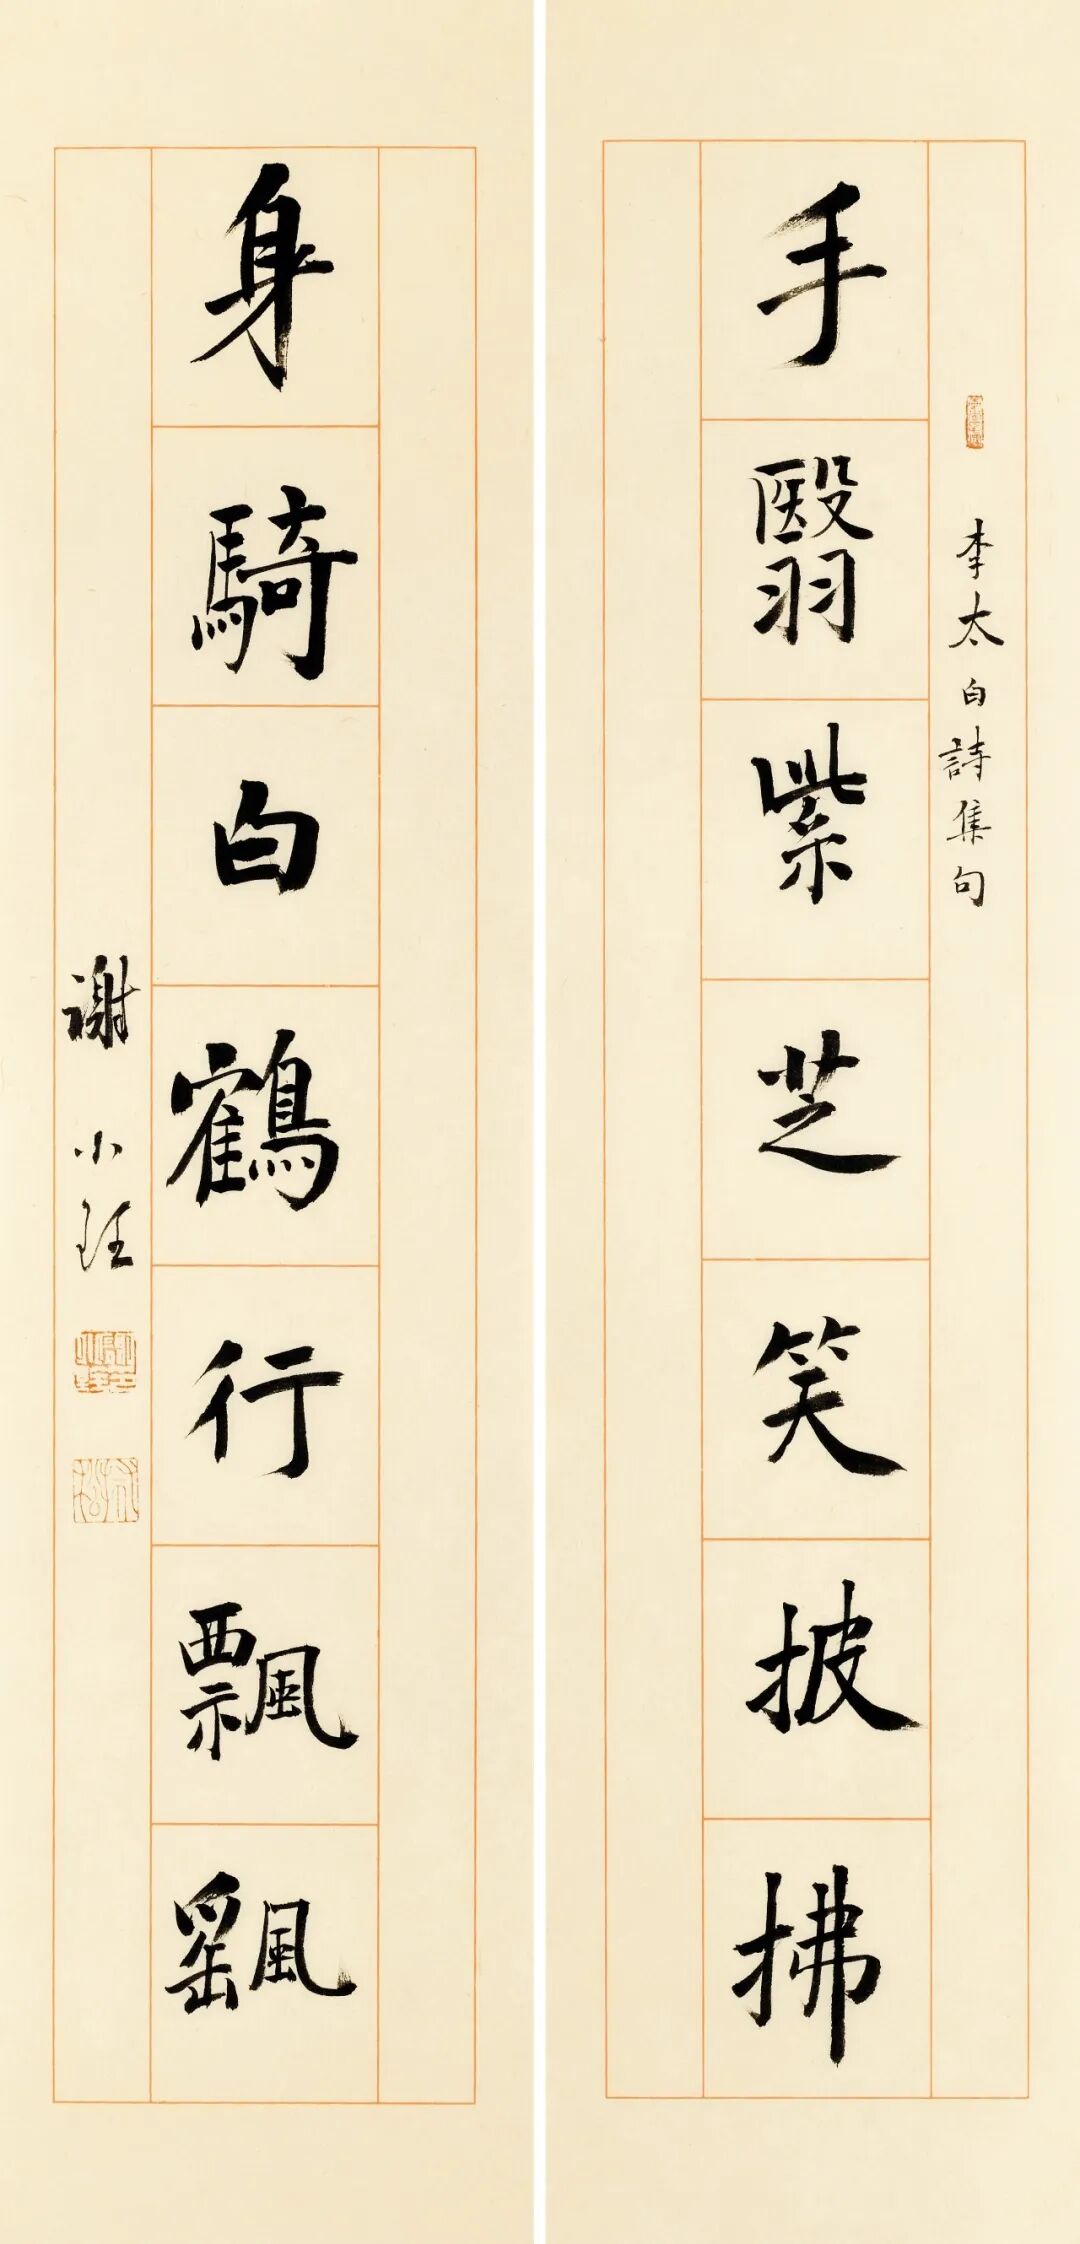 李太白詩集句
手翳紫芝笑披拂
身騎白鶴行飄飖
謝小